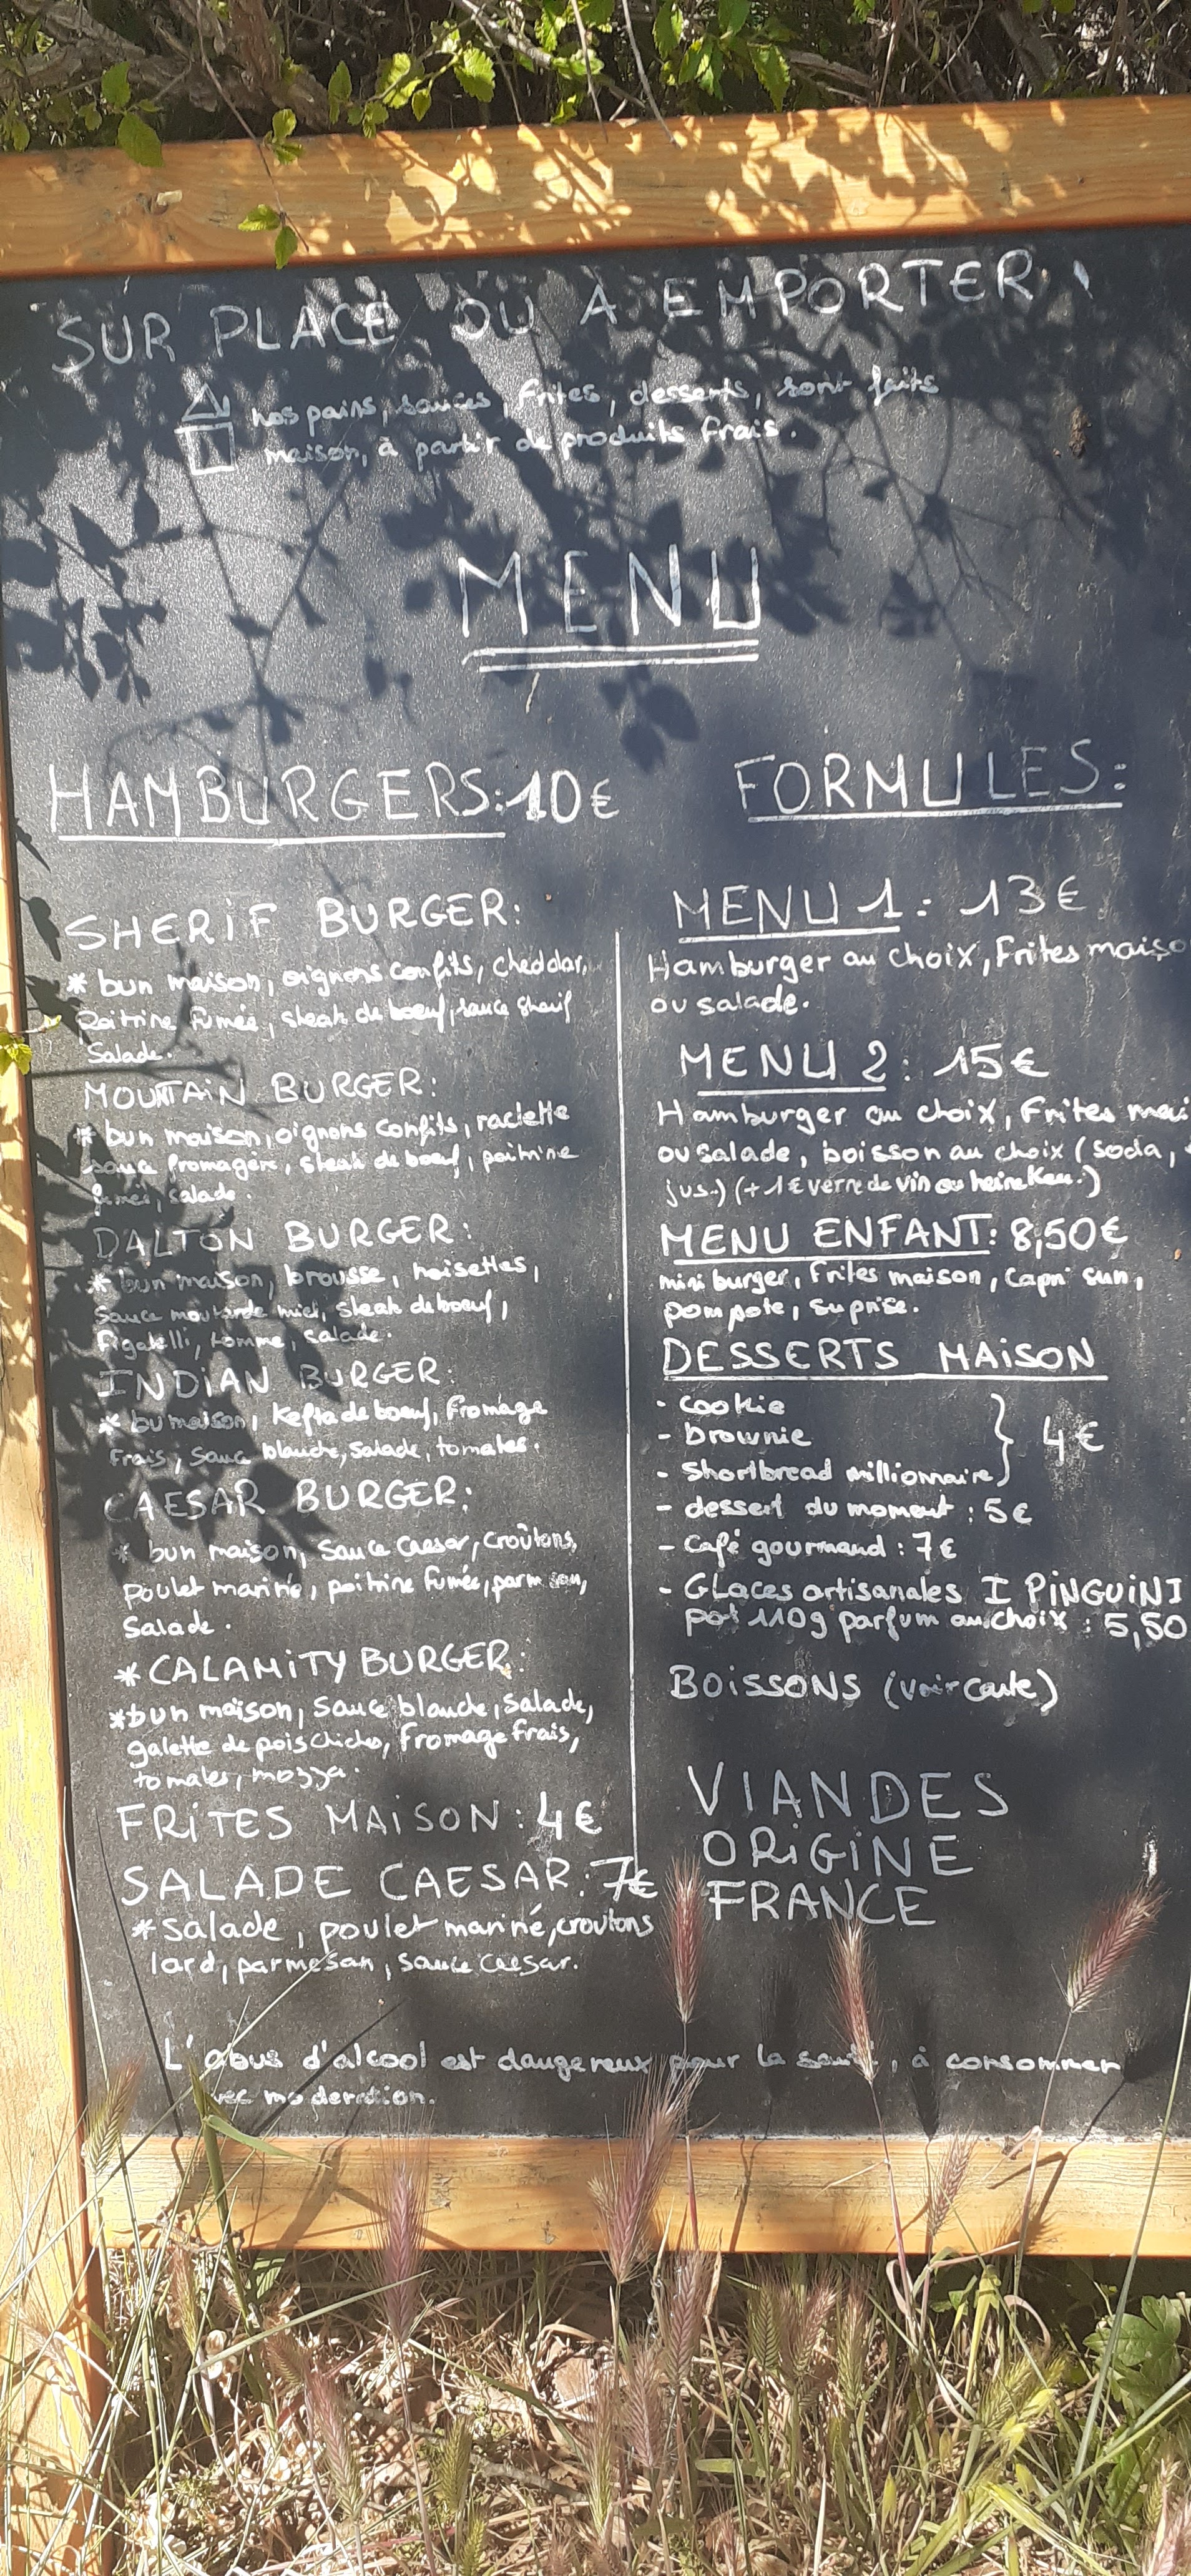 SUR PLACE OU A EMPORTER
nos pains, sauces, frites, desserts, sont faits
maison, à partir de produits frais.
MENU
HAMBURGERS: 10€
SHERIF BURGER:
* bun maison, oignons confits, cheddar,
Poitrine fumée, steak de boeuf, sauce Sherif
Salade.
MOUNTAIN BURGER:
* bun maison, oignons confits, raclette
sauce fromagère, steak de boeuf, poitrine
fumée, salade.
DALTON BURGER:
* bun maison, brousse, noisettes,
Sauce moutarde miel, steak de boeuf,
figatelli, tomme, salade.
INDIAN BURGER:
* bu maison, Kefta de boeuf, fromage
frais, sauce blanche, salade, tomates.
CAESAR BURGER:
* bun maison, sauce caesar, croûtons,
Poulet mariné, poitrine fumée, parmesan,
Salade.
* CALAMITY BURGER:
* bun maison, sauce blanche, salade,
galette de pois chiches, fromage frais,
tomates, mozza.
FRITES MAISON: 4€
SALADE CAESAR: 7€
* salade, poulet mariné, croutons
lard, parmesan, sauce caesar.
FORMULES:
MENU 1: 13€
Hamburger au choix, Frites maiso
ou salade.
MENU 2: 15€
Hamburger au choix, Frites mai
ou salade, boisson au choix (soda,
jus.) (+1€ verre de vin ou heineken.)
MENU ENFANT: 8,50€
mini burger, frites maison, Capri sun,
pompote, suprise.
DESSERTS MAISON
- cookie
- brownie
- Shortbread millionnaire } 4€
- dessert du moment : 5€
- Café gourmand : 7€
- GLaces artisanales I PINGUINI
pot 110g parfum au choix : 5,50
BOISSONS (voir carte)
VIANDES
ORIGINE
FRANCE
L'abus d'alcool est dangereux pour la santé, à consommer
avec moderation.